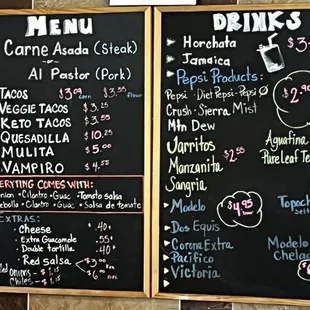 MENU
Carne Asada (Steak)
or
Al Pastor (Pork)
TACOS $3.09 corn $3.55 flour
VEGGIE TACOS $3.25
KETO TACOS $3.55
QUESADILLA $10.25
MULITA $5.00
VAMPIRO $4.55
ERYTHING COMES WITH:
Cilantro Guac Tomato salsa
Cilantro Guac Salsa de tomate
EXTRAS:
Cheese .40
Extra Guacamole .55
Double tortilla .40
Red salsa $3.00
onions $1.15 $6.00
Chiles $1.15
DRINKS
Horchata
Jamaica
Pepsi Products:
Pepsi Diet Pepsi Pepsi
Crush Sierra Mist
Mtn Dew
Jarritos
Manzanita $2.55
Sangria
Aguafina
Pure Leaf Te
Modelo $4.95
Dos Equis
Corona Extra
Pacifico
Victoria
Topoch
Modelo
Chela